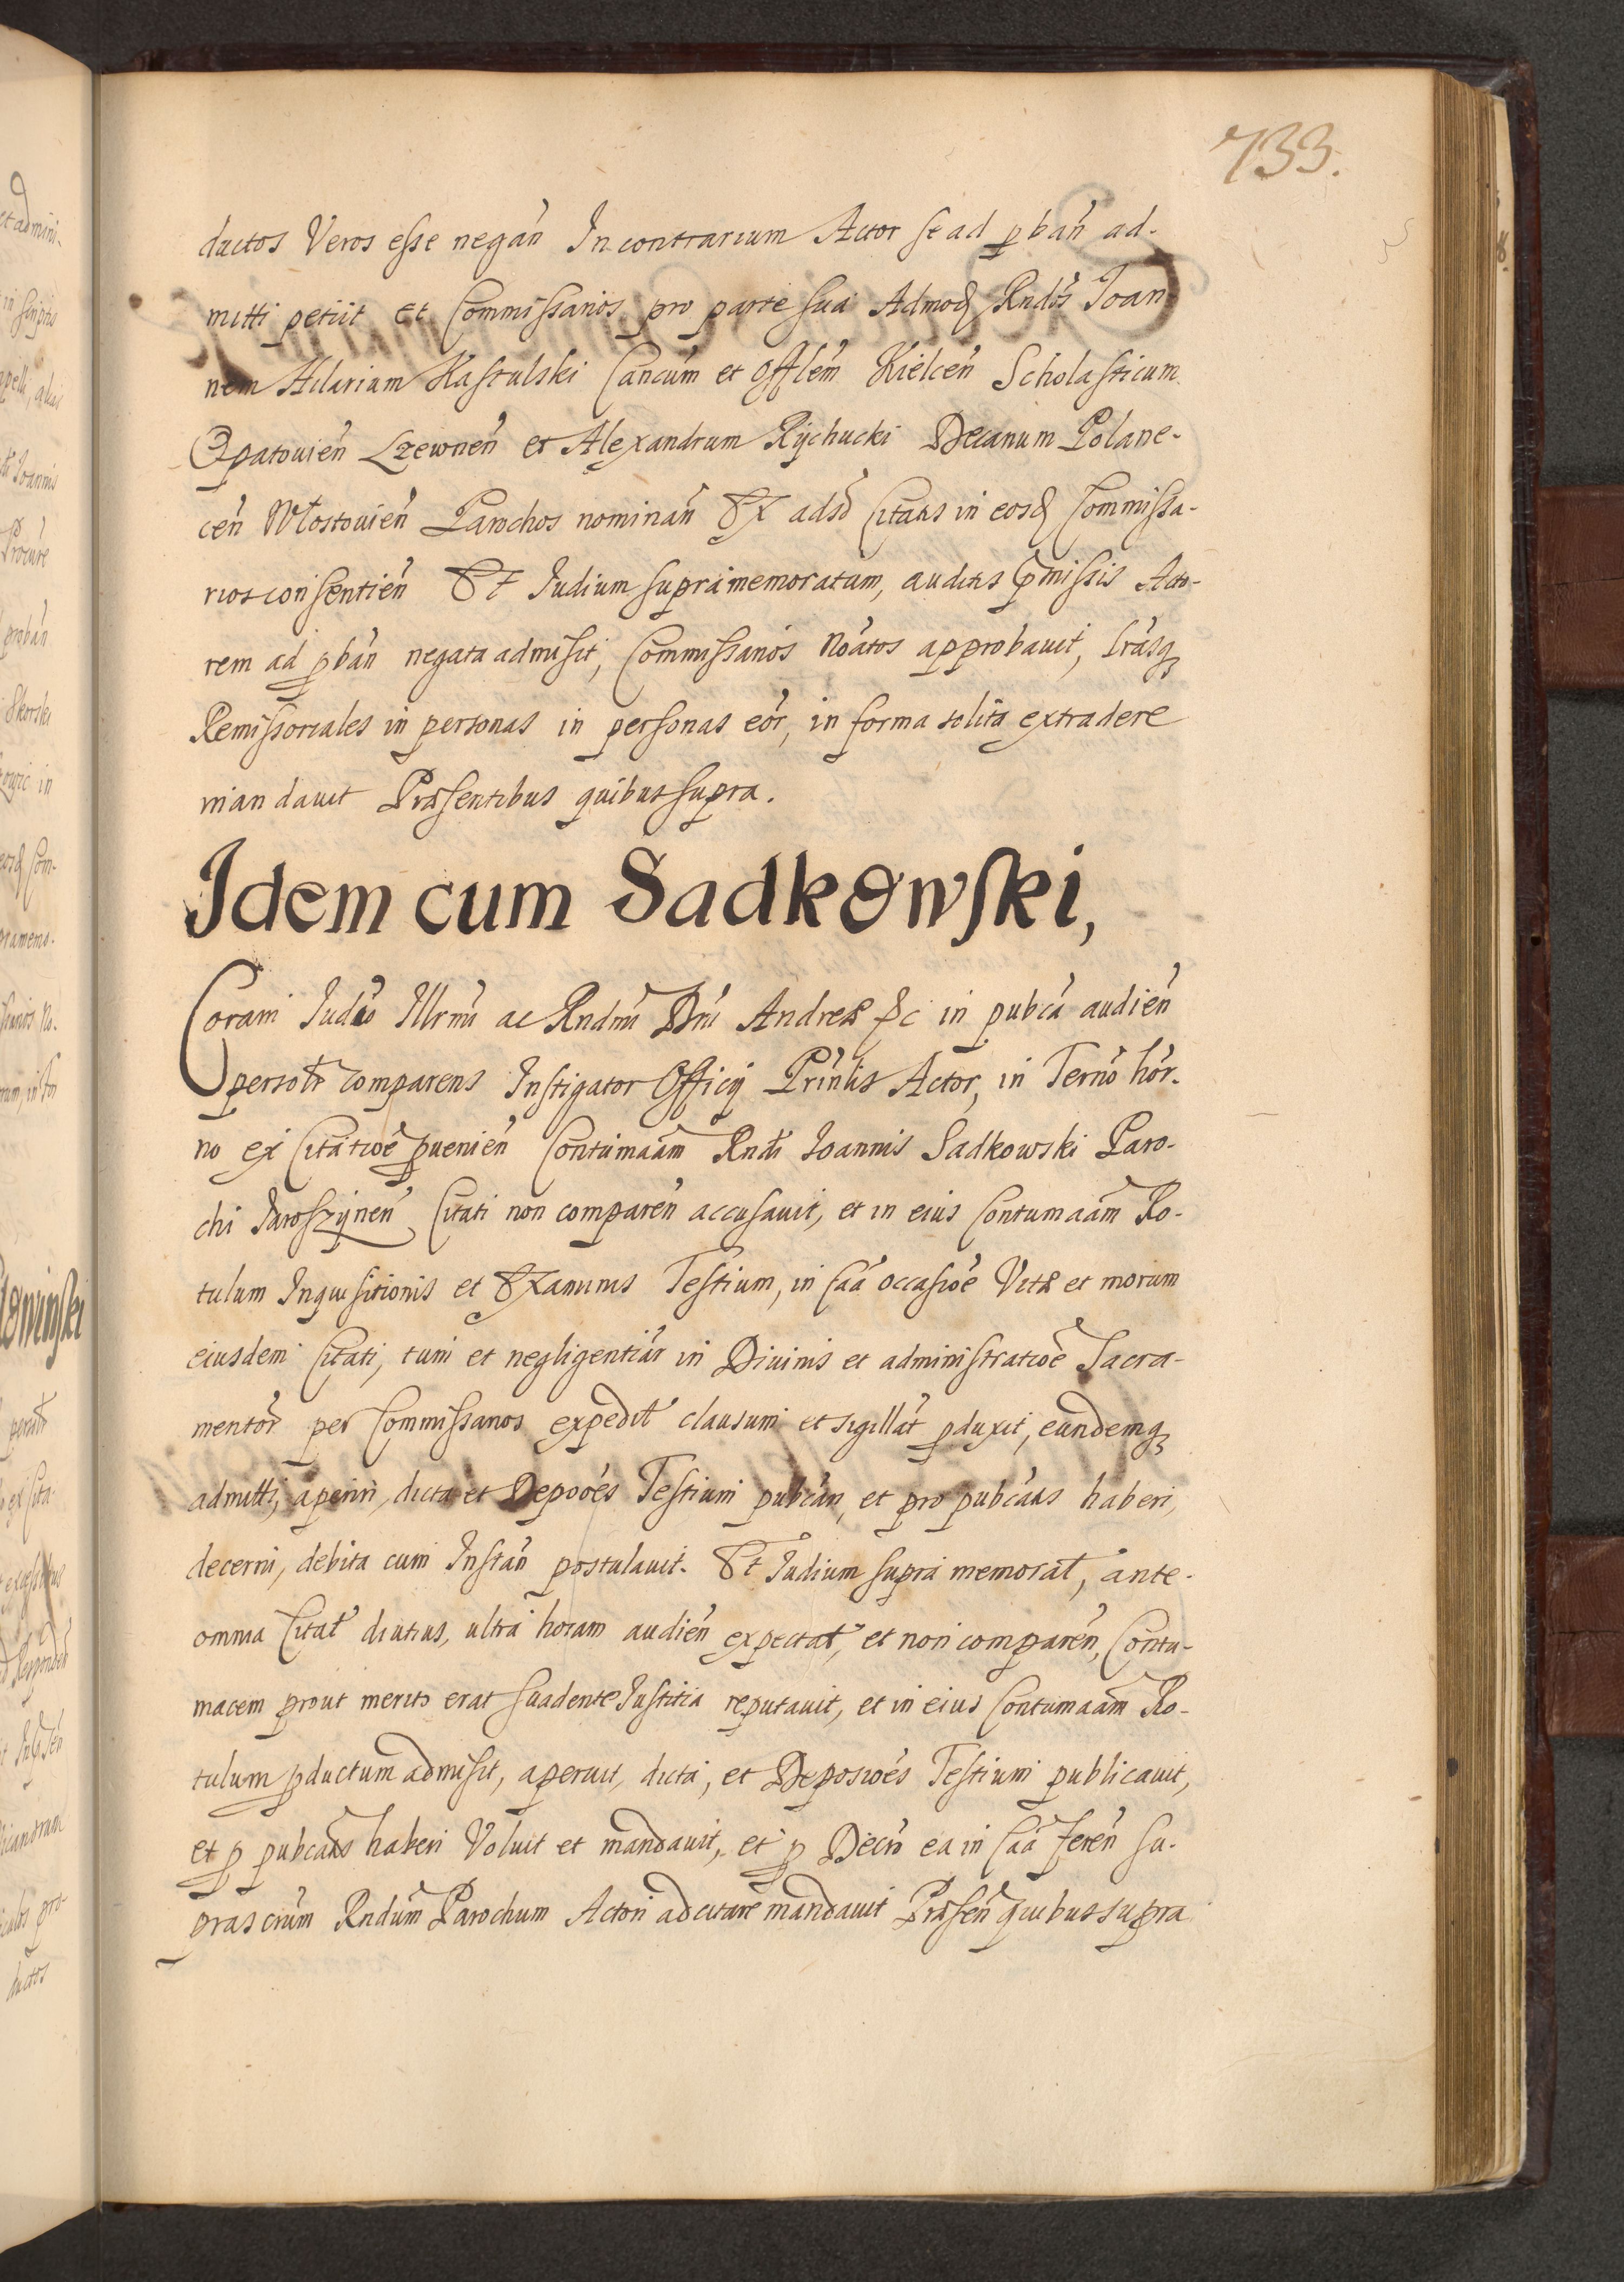 733.
ductos Veros esse negan̄ In contrarium Actor se ad ꝓban̄ ad-
mitti petiit et Commissarios pro parte sua Admoꝺ Rndos Joan
nem Hilarium Kastulski Cancum et Offlem Kielcen̄ Scholasticum
Opatouien̄ Lzewnen̄ et Alexandrum Rychucki Decanum Polane-
cen̄ Włostouien̄ Parochos nominan̄ Ex adso Citatus in eosꝺ Commissa-
rios consentien̄ Et Iudium supra memoratum, auditis p̄missis Acto-
rem ad ꝓban̄ negata admisit, Commissarios Noatos approbauit, Lrasqꝫ
Remissoriales in personas in personas eor, in forma solita extradere
mandauit Præsentibus quibus supra.
Idem cum Sadkowski,
Coram Iudio Illrmi ac Rndmi Dni Andreæ &c in pubca audien̄
persolr comparens Instigator Officij Prinlis Actor, in Termo hor-
no ex Citatioe ꝓuenien̄ Contumaam Rndi Ioannis Sadkowski Paro-
chi Jaroszynen̄ Citati non comparen̄ accusauit, et in eius Contumaam Ro-
tulum Inquisitionis et Examinis Testium, in Caa occasioe Vitæ et morum
eiusdem Citati, tum et negligentiar in Diuinis et administratioe Sacra-
mentor per Commissarios expedit clausum et sigillat ꝓduxit, eundemqꝫ
admitti, aperiri, dicta et Depooes Testium pubcan, et pro pubcatis haberi,
decerni, debita cum Instan̄ postulauit. Et Iudium supra memorat, ante-
omnia Citat diutius, ultra horam audien̄ expectat, et non comparen̄, Contu-
macem prout merito erat suadente Iustitia reputauit, et in eius Contumaam Ro-
tulum ꝓductum admisit, aperuit, dicta, et Deposioes Testium publicauit,
et ꝓ pubcatis haberi Voluit et mandauit, et ꝓ Decro ea in Caa feren̄ su-
prascrum Rndum Parochum Actori adcitare mandauit Præsen̄ quibus supra